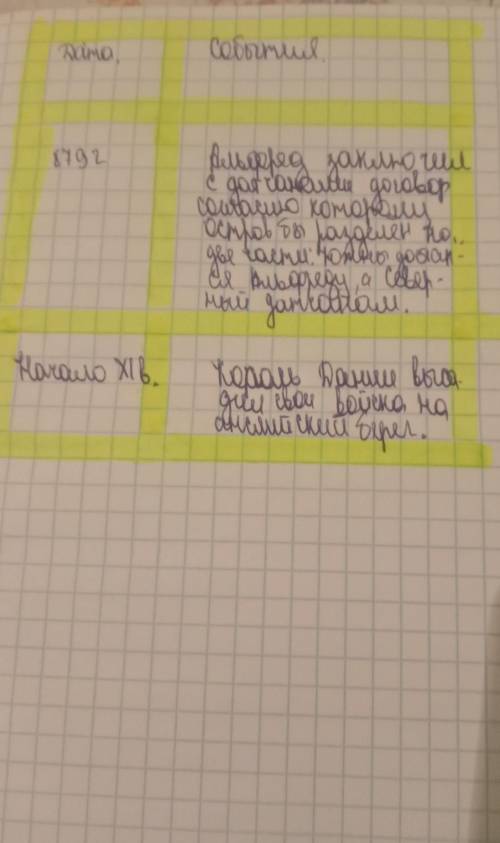 Дата. События.
879 г Альфред заключил
с датчанами договор
согласно которому
остров бы разделен на
две части: южны достал-
ся Альфреду, а Север-
ный датчанам.
Начало XI в. Король Дании выса-
дил свои войска на
английский берег.